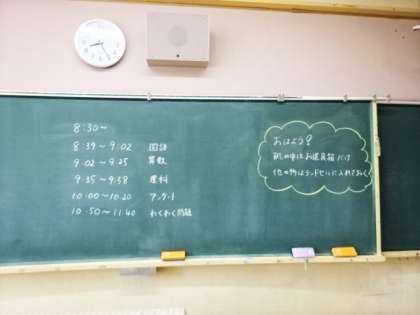 8:30〜
8:39〜9:02 国語
9:02〜9:25 算数
9:35〜9:58 理科
10:00〜10:20 アンケート
10:50〜11:40 わくわく問題
おはよう?
机の中はお道具箱だけ
(他の物はランドセルに入れておく)